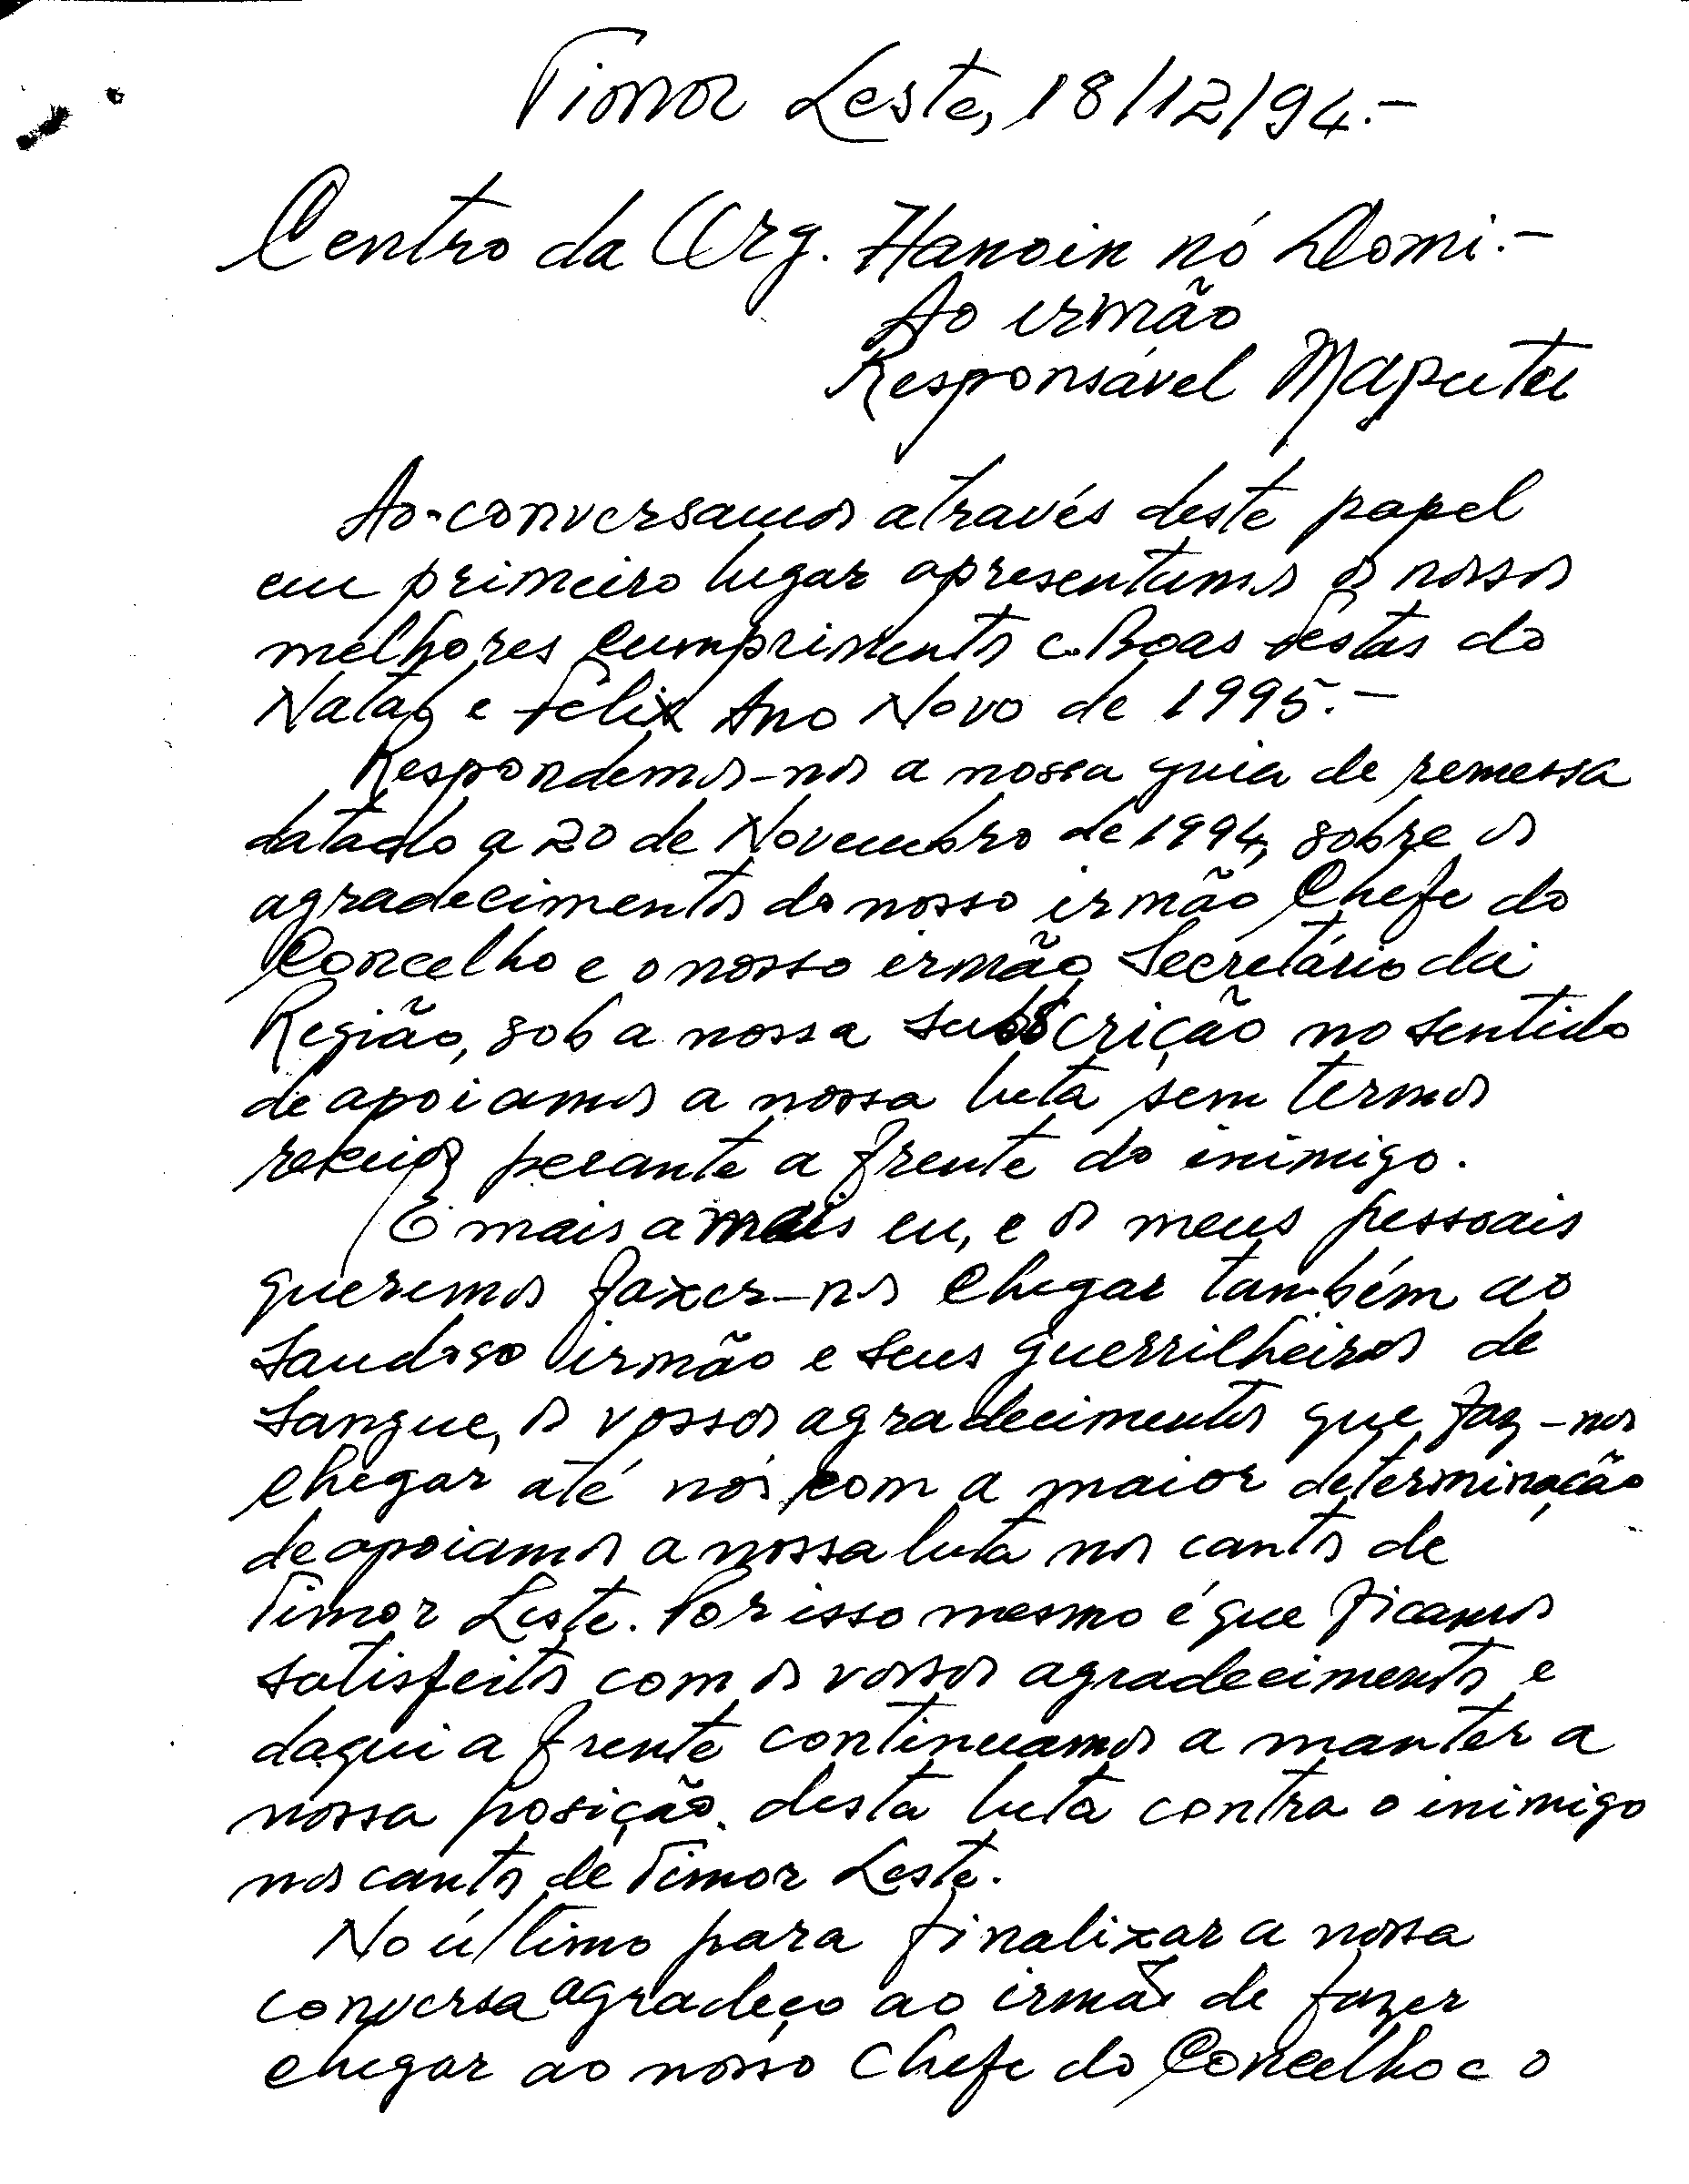 Timor Leste, 18/12/94.-
Centro da Org. Hanoin nó Domi.-
Ao irmão
Responsável Maputu
Ao-conversamos através deste papel
em primeiro lugar apresentamos os nossos
melhores cumprimentos e Boas festas do
Natal e felix Ano Novo de 1995.-
Respondemos-nos a nossa guia de remessa
datado a 20 de Novembro de 1994, sobre os
agradecimentos do nosso irmão Chefe do
Concelho e o nosso irmão Secretário da
Região, sob a nossa subscrição no sentido
de apoiamos a nossa luta sem termos
receios perante a frente do inimigo.
E mais a mais eu, e os meus pessoais
queremos faxer-nos chegar também ao
saudoso irmão e seus guerrilheiros de
sangue, os vossos agradecimentos que faz-nos
chegar até nós com a maior determinação
de apoiamos a nossa luta nos cantos de
Timor Leste. Por isso mesmo é que ficamos
satisfeitos com os vossos agradecimentos e
daqui a frente continuamos a manter a
nossa posição desta luta contra o inimigo
nos cantos de Timor Leste.
No último para finalixar a nossa
conversa agradeço ao irmão de fazer
chegar ao nosso Chefe do Concelho e o